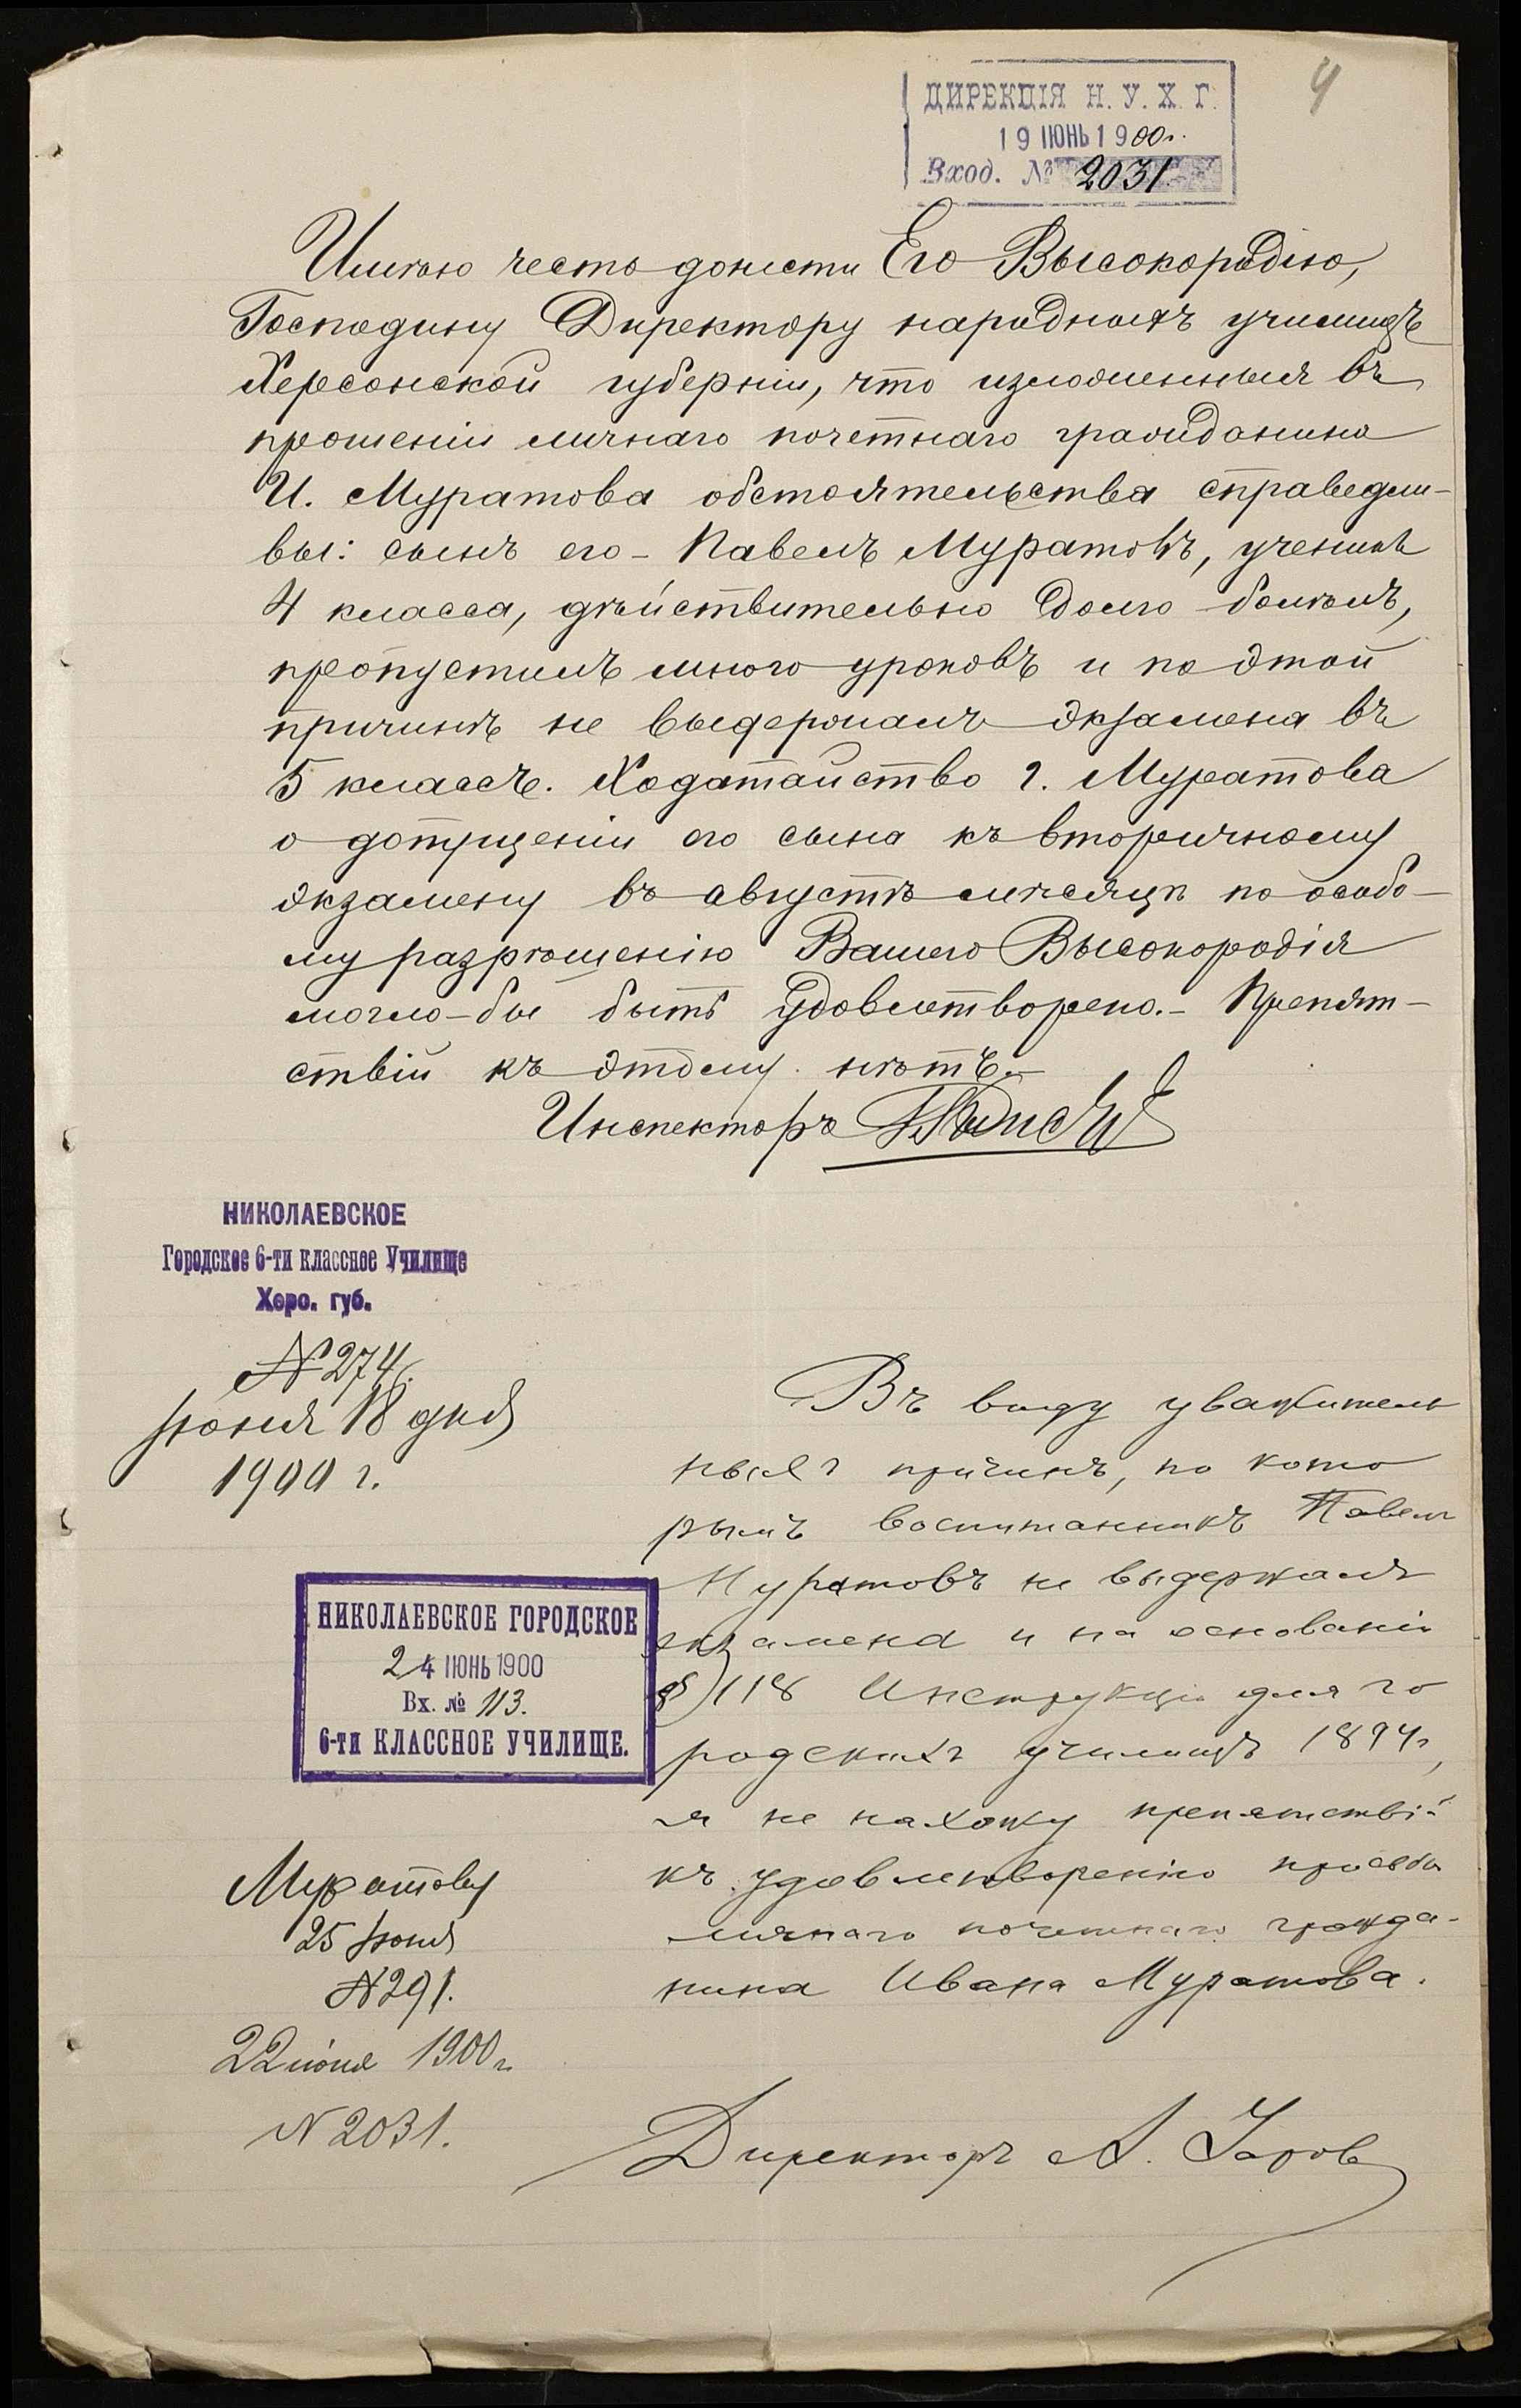 4
ДИРЕКЦІЯ Н. У. Х. Г.
19 ІЮНЬ 1900 г.
Вход. № 2031
Имѣю честь донести Его Высокородію,
Господину Директору народныхъ училищъ
Херсонской губерніи, что изложенныя въ
прошеніи личнаго почетнаго гражданина
И. Муратова обстоятельства справедли-
вы: сынъ его - Павелъ Муратовъ, ученикъ
4 класса, дѣйствительно долго болѣлъ,
пропустилъ много уроковъ и по этой
причинѣ не выдержалъ экзамена въ
5 классъ. Ходатайство г. Муратова
о допущеніи его сына къ вторичному
экзамену въ августѣ мѣсяцѣ по особо-
му разрѣшенію Вашего Высокородія
могло-бы быть удовлетворено.- Препят-
ствій къ этому нѣтъ.-
Инспекторъ
НИКОЛАЕВСКОЕ
Городское 6-ти классное Училище
Херс. губ.
№ 274.
Іюня 18 дня
1900 г.
Въ виду уважитель
ныхъ причинъ, по кото
рымъ воспитанникъ Павелъ
Муратовъ не выдержалъ
экзамена и на основаніи
§ 118 Инструкціи для го
родскихъ училищъ 1894 г,
я не нахожу препятствій
къ удовлетворенію просьбы
личнаго почетнаго гражда-
нина Ивана Муратова.
НИКОЛАЕВСКОЕ ГОРОДСКОЕ
24 ІЮНЬ 1900
Вх. № 113.
6-ТИ КЛАССНОЕ УЧИЛИЩЕ.
Муратову
25 Іюня
№ 291.
22 іюня 1900 г.
№ 2031.
Директоръ А.